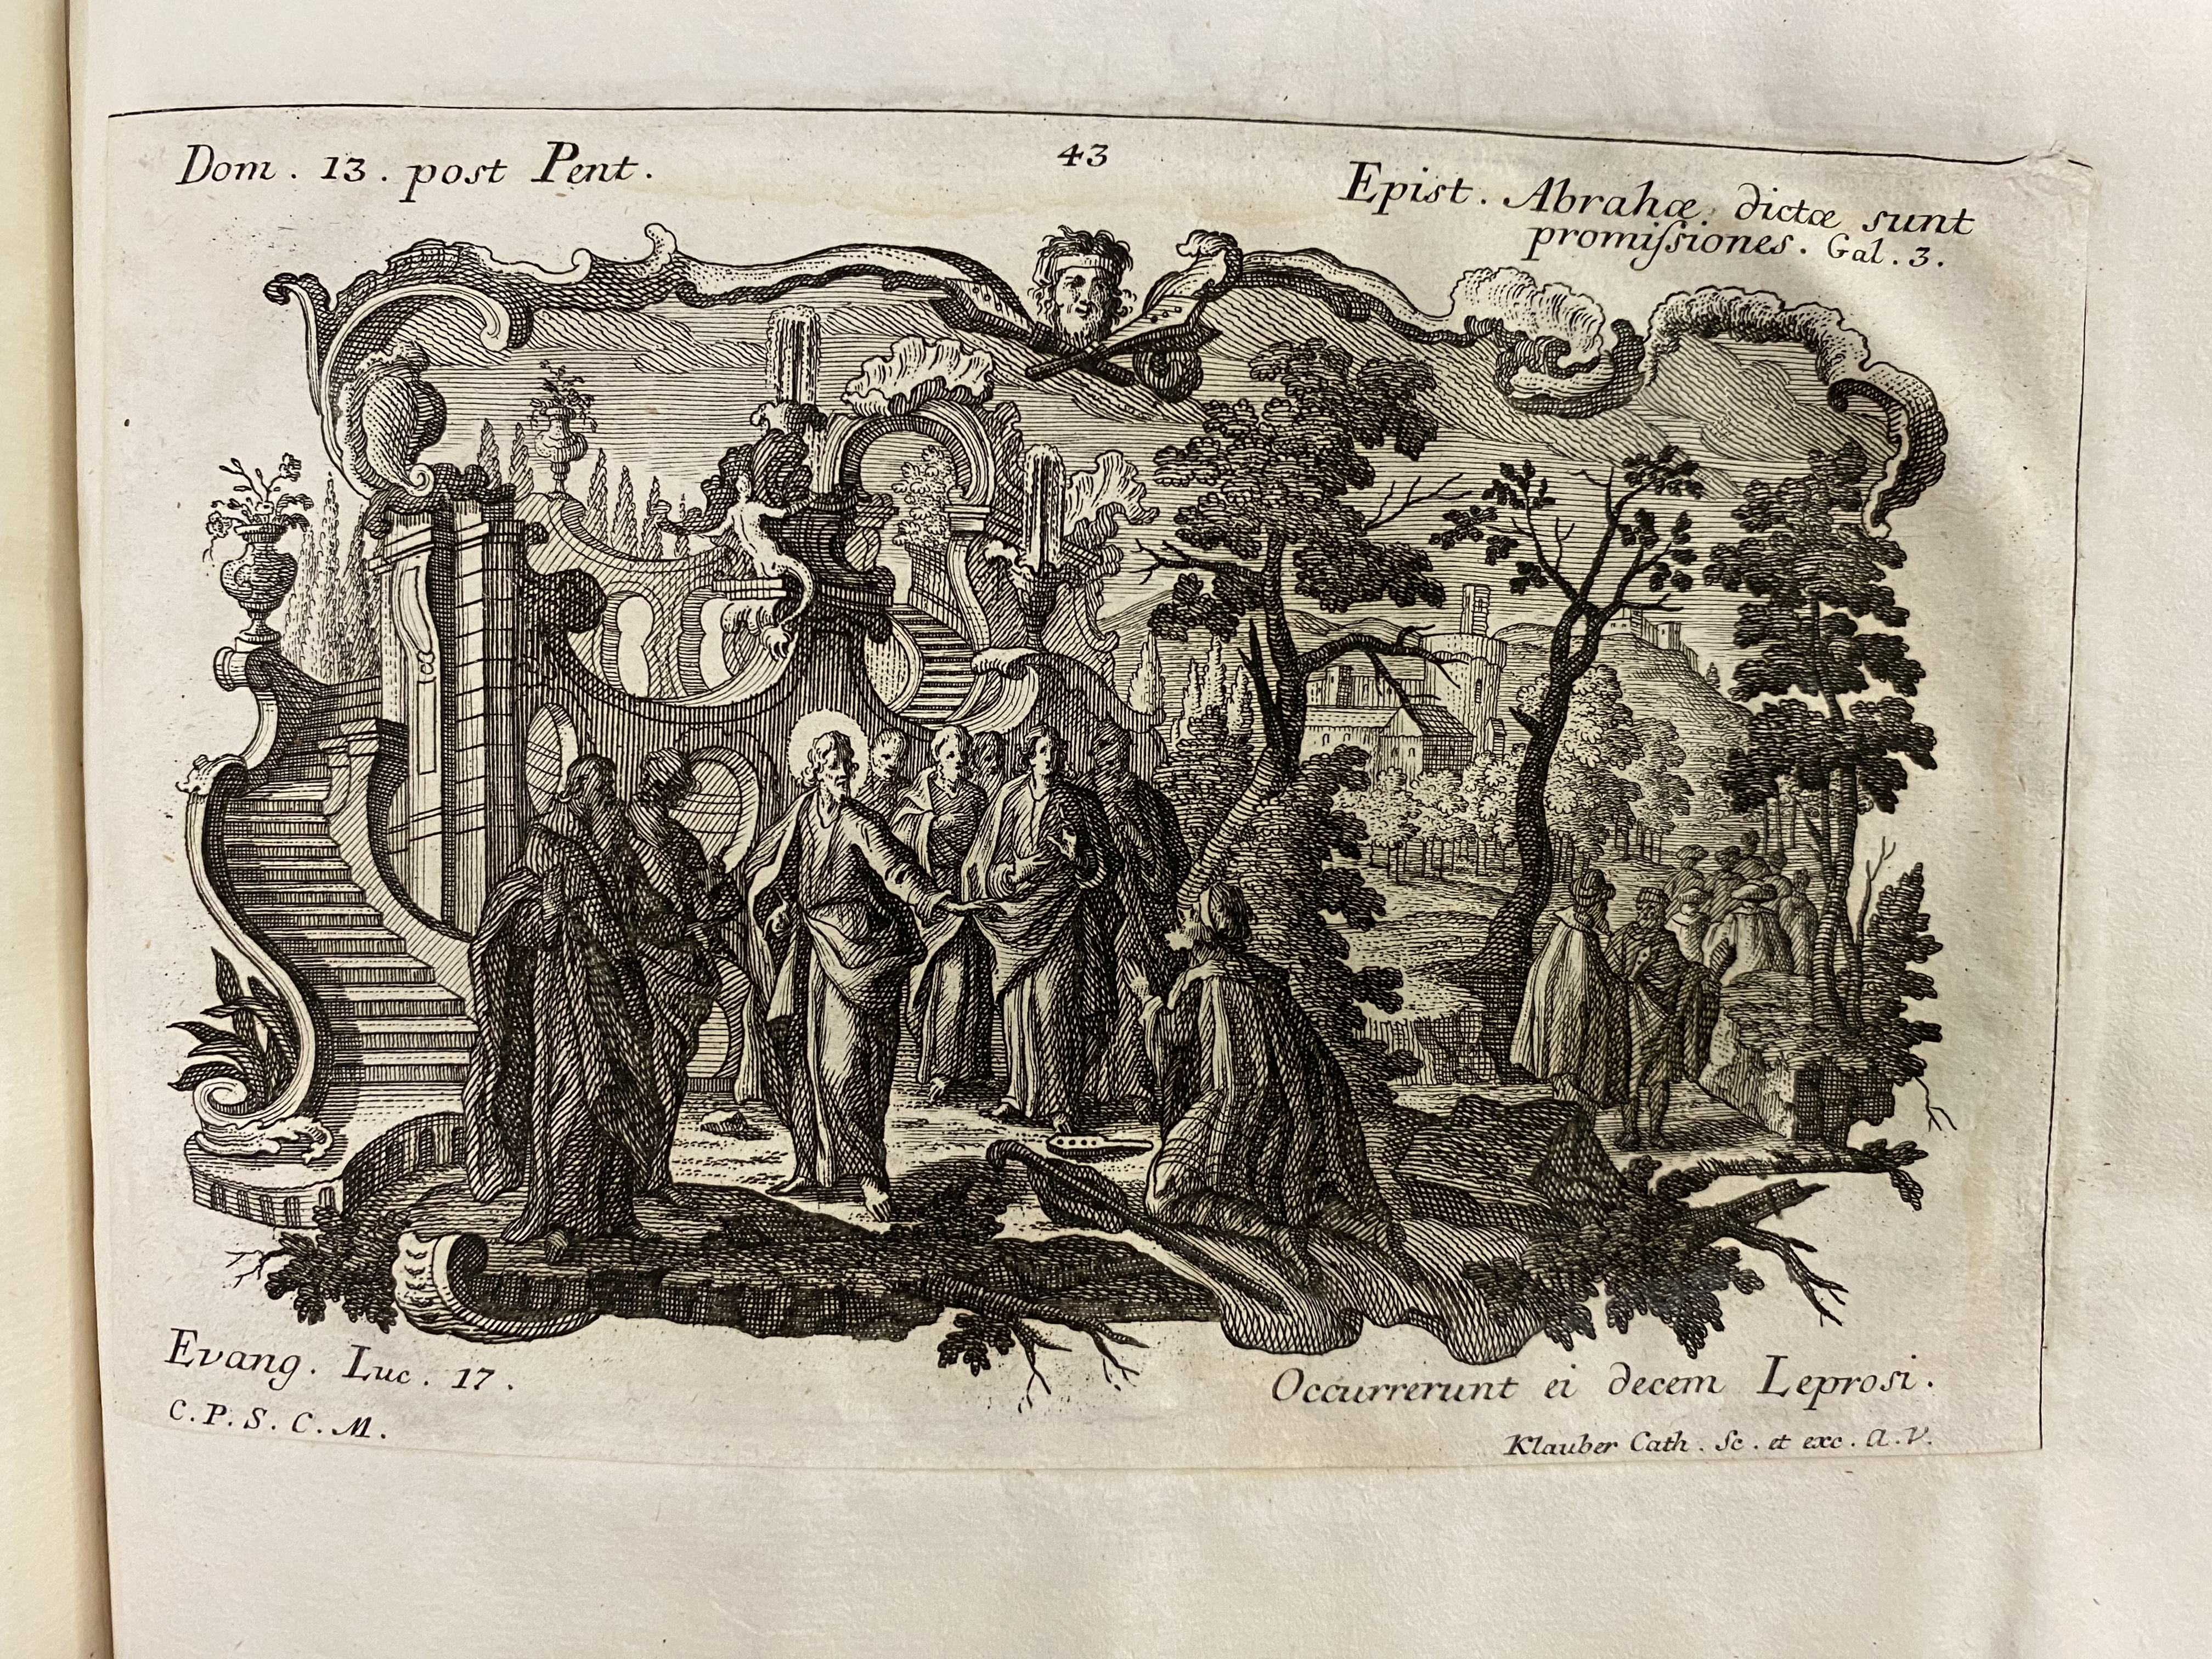 Dom. 13. post Pent.
43
Epist. Abrahæ dictæ sunt
promiſsiones. Gal. 3.
Evang. Luc. 17.
Occurrerunt ei decem Leprosi.
C. P. S. C. M.
Klauber Cath. Sc. et exc. A. V.